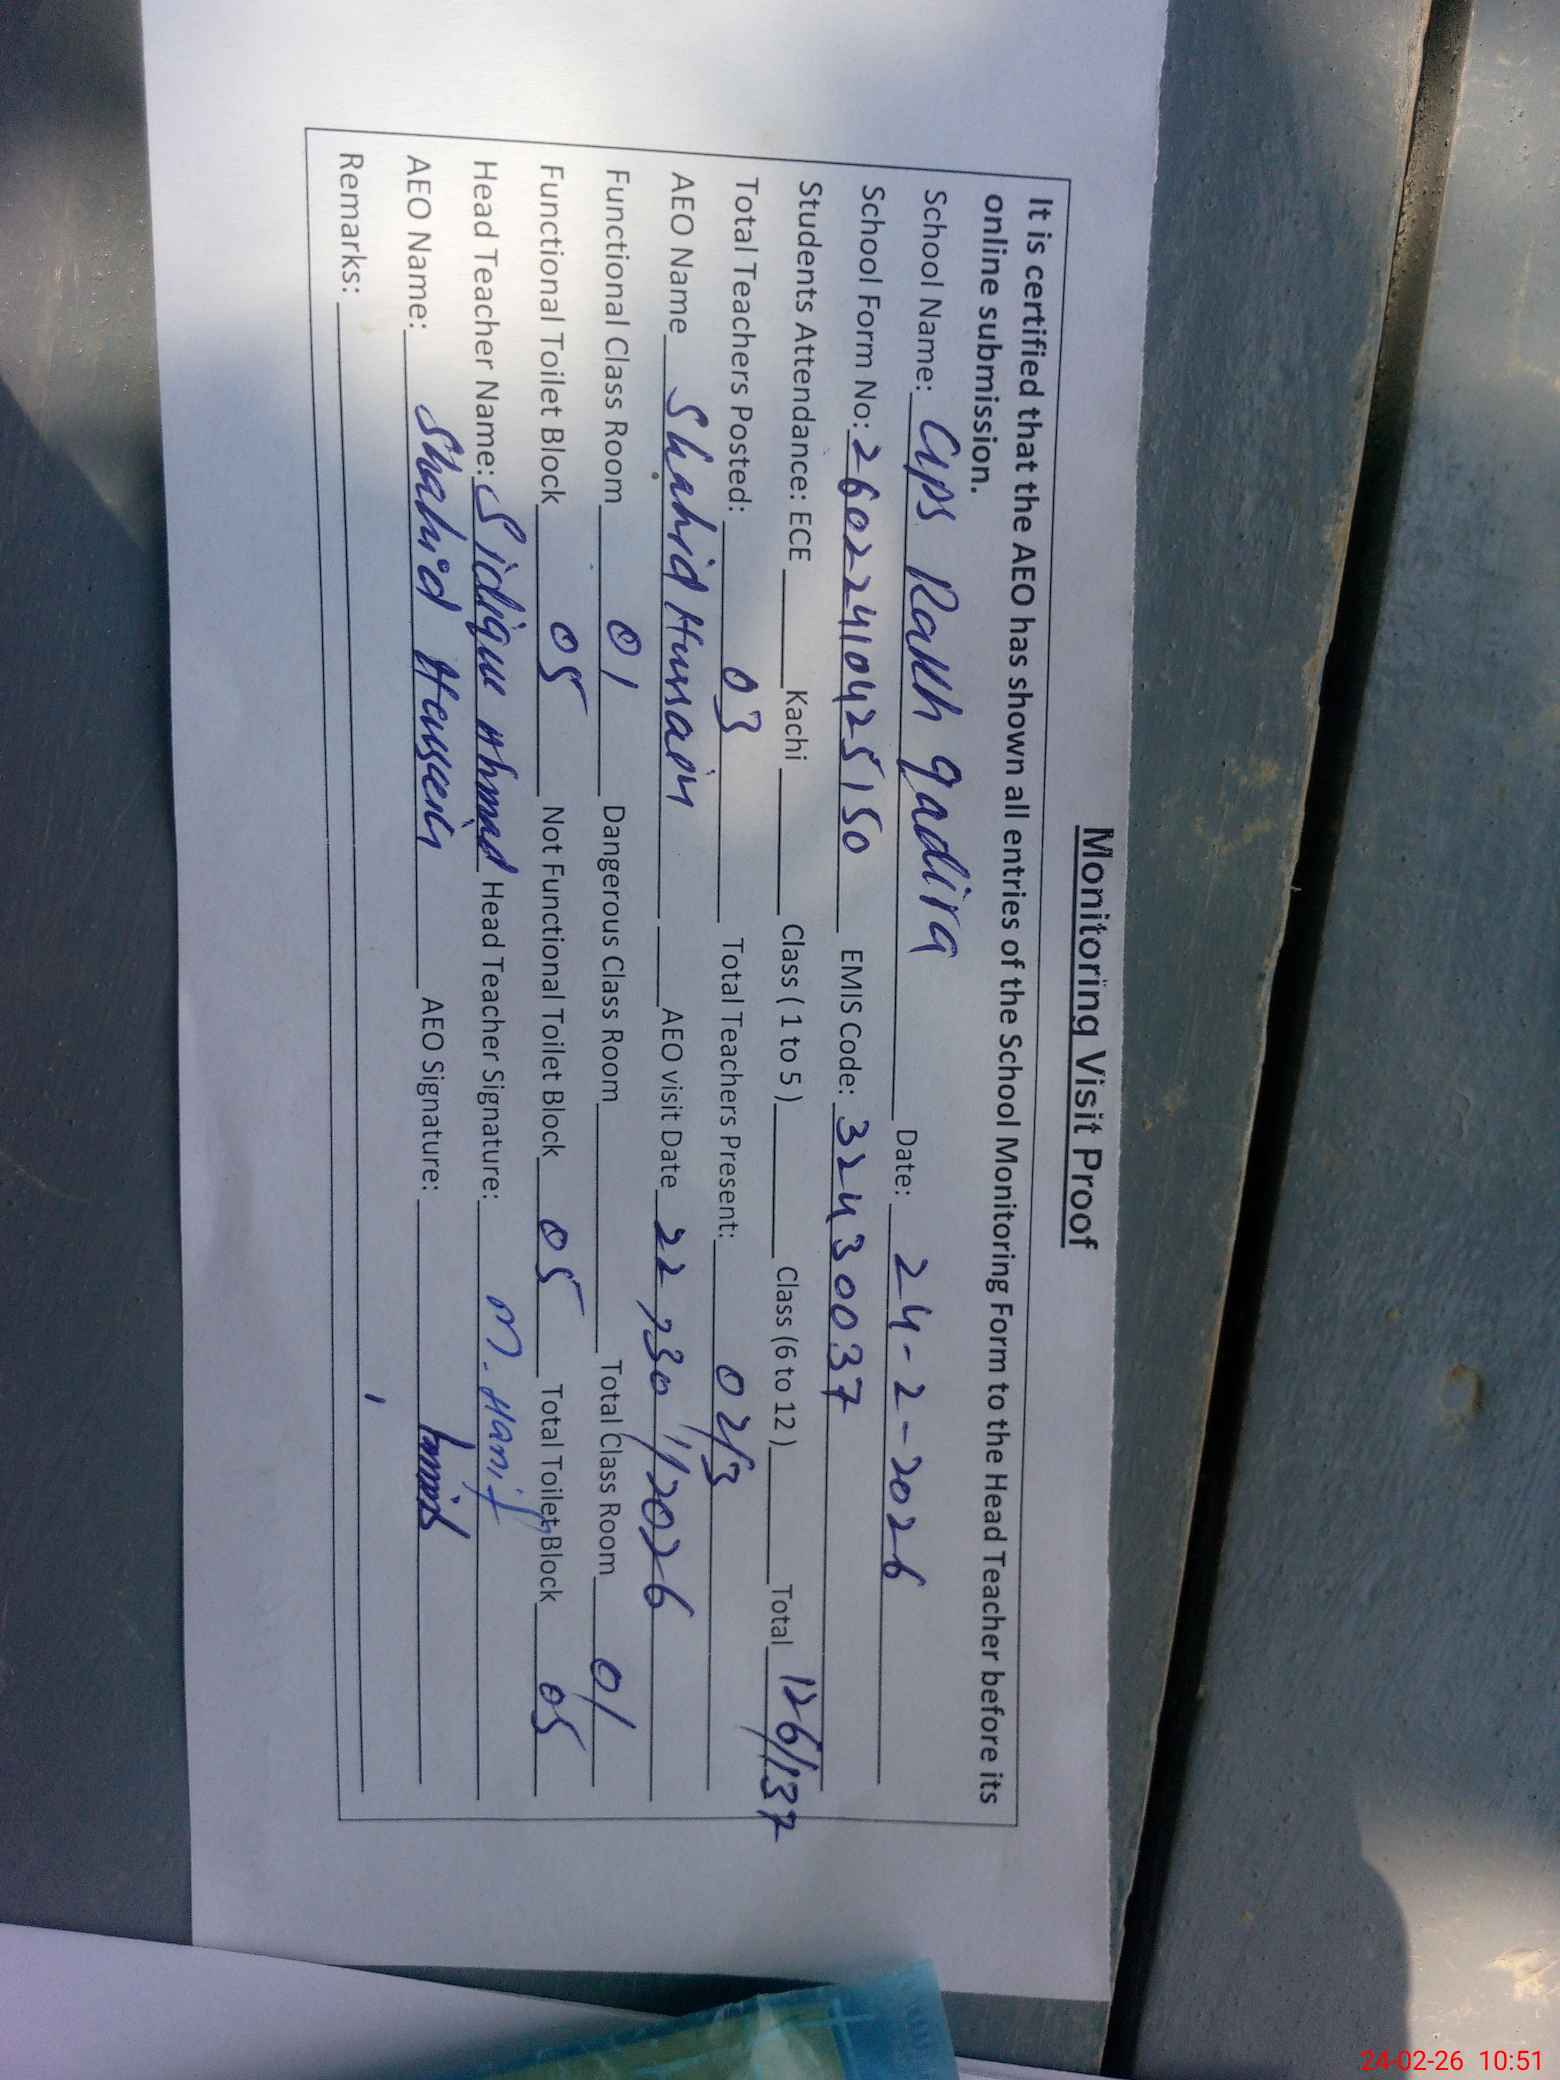 Monitoring Visit Proof
It is certified that the AEO has shown all entries of the School Monitoring Form to the Head Teacher before its
online submission.
School Name: GPS Rakh qadira Date: 24-2-2026
School Form No: 26022410425150 EMIS Code: 32430037
Students Attendance: ECE Kachi Class ( 1 to 5 ) Class (6 to 12 ) Total 126/137
Total Teachers Posted: 03 Total Teachers Present: 02/3
AEO Name Shahid Hussain AEO visit Date 22, 30/1/2026
Functional Class Room 01 Dangerous Class Room Total Class Room 01
Functional Toilet Block 05 Not Functional Toilet Block 05 Total Toilet Block 05
Head Teacher Name: Sidique Ahmad Head Teacher Signature: M. Hanif
AEO Name: Shahid Hussain AEO Signature:
Remarks:
24-02-26 10:51